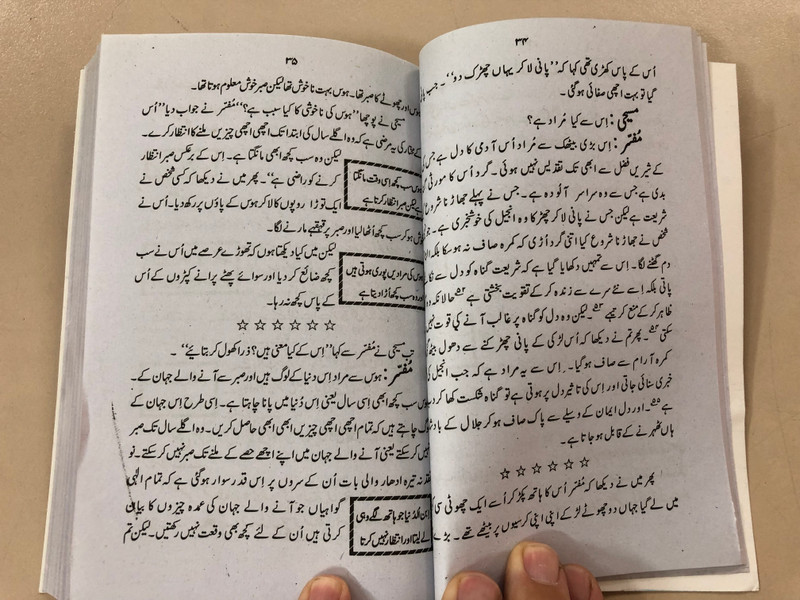 ۳۴
اُس کے پاس کھڑی تھی کہا کہ ”پانی لا کر یہاں چھڑک دو“۔ جب
گیا تو بہت اچھی صفائی ہو گئی۔
مسیحی: اِس سے کیا مُراد ہے؟
مُفسّر: اِس بڑی بیٹھک سے مُراد اُس آدمی کا دل ہے جس
کے شیریں فضل سے ابھی تک تقدیس نہیں ہوئی۔ گرد اُس کا مورثی
بدی ہے جس سے وہ سراسر آلودہ ہے۔ جس نے پہلے جھاڑنا شروع
شریعت ہے لیکن جس نے پانی لا کر چھڑکا وہ انجیل کی خوشخبری ہے۔ جو
شخص نے جھاڑنا شروع کیا اتنی گرد اُڑی کہ کمرہ صاف نہ ہو سکا بلکہ
دم گھٹنے لگا۔ اِس سے تمہیں دکھایا گیا ہے کہ شریعت گناہ کو دل سے
پاتی بلکہ اِسے نئے سرے سے زندہ کر کے تقویت بخشتی ہے حالانکہ وہ
ظاہر کر کے منع کرتی ہے۔ لیکن وہ دل کو گناہ پر غالب آنے کی قوت نہیں
سکتی۔ پھر تم نے دیکھا کہ اُس لڑکی کے پانی چھڑکنے سے دھول بیٹھ
کمرہ آرام سے صاف ہو گیا۔ اِس سے یہ مراد ہے کہ جب انجیل کی
خبری سنائی جاتی اور اِس کی تاثیر دل پر ہوتی ہے تو گناہ شکست کھا کر
ہے۔ اور دل ایمان کے وسیلے سے پاک صاف ہو کر جلال کے
ہاں ٹھہرنے کے قابل ہو جاتا ہے۔
☆☆☆☆☆☆
پھر میں نے دیکھا کہ مُفسّر اُس کا ہاتھ پکڑ کر اُسے ایک چھوٹی سی
میں لے گیا جہاں دو چھوٹے لڑکے اپنی اپنی کرسیوں پر بیٹھے تھے۔ بڑے
۳۵
ہوس اور چھوٹے کا صبر تھا۔ ہوس بہت ناخوش تھا لیکن صبر خوش معلوم ہوتا تھا۔
مسیحی نے پوچھا ”ہوس کی ناخوشی کا کیا سبب ہے؟“ مُفسّر نے جواب دیا ”اُس
کے مختار کی یہ مرضی ہے کہ وہ اگلے سال کی ابتدا تک اچھی اچھی چیزیں ملنے کا انتظار کرے۔
لیکن وہ سب کچھ ابھی مانگتا ہے۔ اِس کے برعکس صبر انتظار
کرنے کو راضی ہے“۔ پھر میں نے دیکھا کہ کسی شخص نے
ایک توڑا روپوں کا لا کر ہوس کے پاؤں پر رکھ دیا۔ اُس نے
ہوس سب کچھ اِسی وقت مانگتا
ہے لیکن صبر انتظار کرتا ہے
خوش ہو کر سب کچھ اُٹھا لیا اور صبر پر قہقہے مارنے لگا۔
لیکن میں کیا دیکھتا ہوں کہ تھوڑے عرصے میں اُس نے سب
کچھ ضائع کر دیا اور سوائے پھٹے پرانے کپڑوں کے اُس
کے پاس کچھ نہ رہا۔
ہوس کی مرادیں پوری ہوتی ہیں
اور وہ سب کچھ اُڑا دیتا ہے
☆☆☆☆☆☆
تب مسیحی نے مُفسّر سے کہا ”اِس کے کیا معنی ہیں؟ ذرا کھول کر بتائیے“۔
مُفسّر: ہوس سے مراد اِس دنیا کے لوگ ہیں اور صبر سے آنے والے جہان کے۔
ہوس سب کچھ ابھی اِسی سال یعنی اِس دُنیا میں پانا چاہتا ہے۔ اِسی طرح اِس جہان کے
لوگ چاہتے ہیں کہ تمام اچھی اچھی چیزیں ابھی ابھی حاصل کریں۔ وہ اگلے سال تک صبر
نہیں کر سکتے یعنی آنے والے جہان میں اپنے اچھے حصے کے ملنے تک صبر نہیں کر سکتے۔ نو
نقد نہ تیرہ ادھار والی بات اُن کے سروں پر اِس قدر سوار ہو گئی ہے کہ تمام الٰہی
گواہیاں جو آنے والے جہان کی عمدہ چیزوں کا بیان
کرتی ہیں اُن کے لئے کچھ بھی وقعت نہیں رکھتیں۔ لیکن تم
دُنیا جو ہاتھ لگے وہی
لے لیتا اور انتظار نہیں کرتا